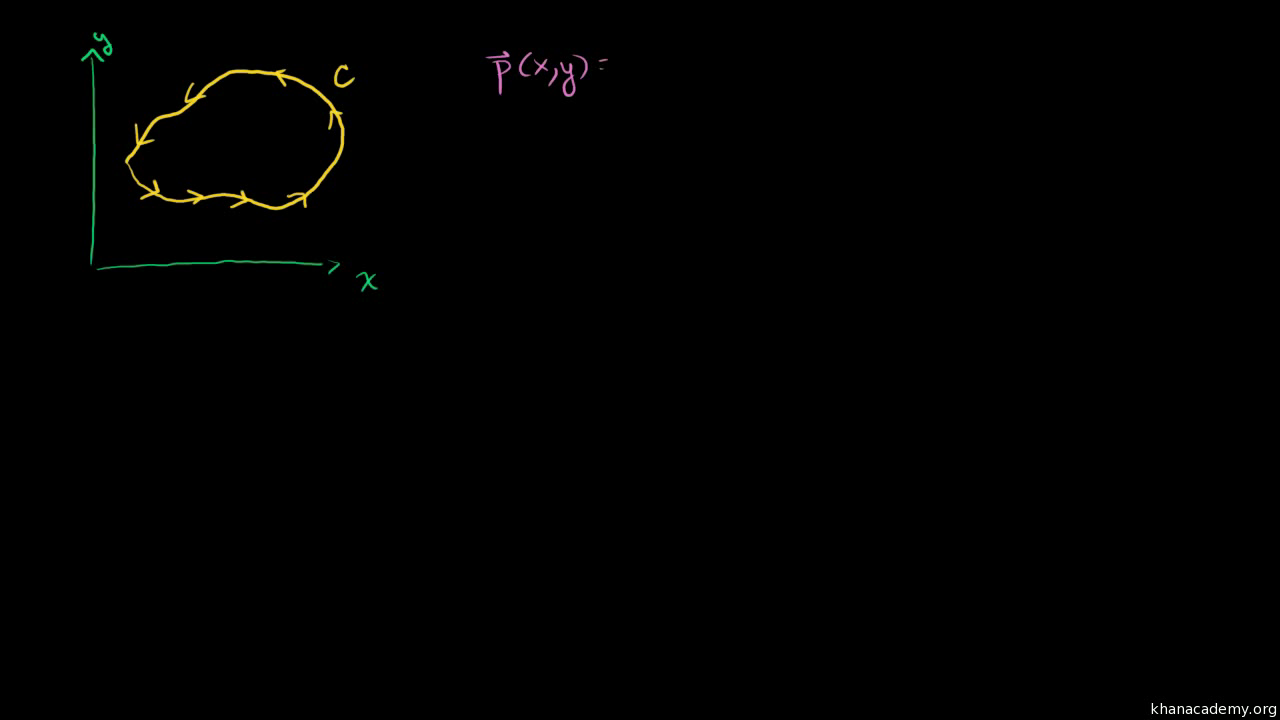 y
C
x
p⃗(x,y) =
khanacademy.org